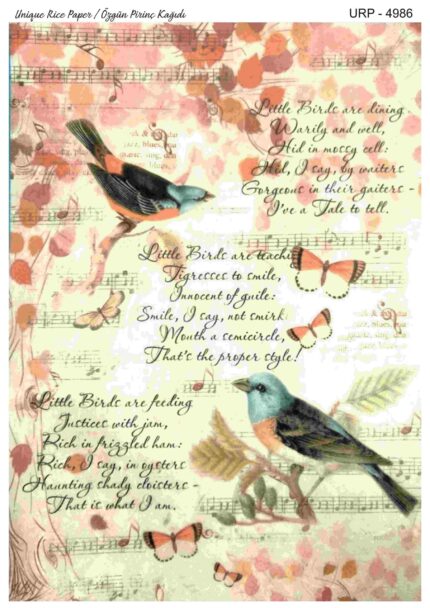 Unique Rice Paper / Özgün Pirinç Kağıdı
URP - 4986
Little Birds are dining
Warily and well,
Hid in mossy cell:
Hid, I say, by waiters
Gorgeous in their gaiters -
I've a Tale to tell.
Little Birds are teachi
Tigresses to smile,
Innocent of guile:
Smile, I say, not smirk
Mouth a semicircle,
That's the proper style!
Little Birds are feeding
Justices with jam,
Rich in frizzled ham:
Rich, I say, in oysters
Haunting shady cloisters -
That is what I am.